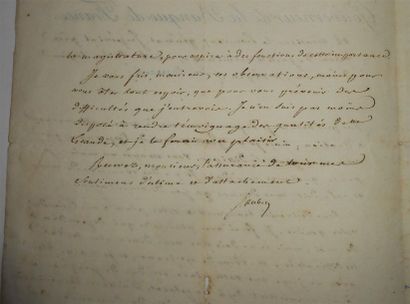 la magistrature, pour aspirer à des fonctions de cette importance.
Je vous fais, monsieur, ces observations, moins pour
vous ôter tout espoir, que pour vous prévenir des
difficultés que j'entrevois. Je n'en suis pas moins
disposé à rendre témoignage des qualités de
et je le ferai avec plaisir.
Recevez, monsieur, l'assurance de tous mes
sentimens d'estime et d'attachement